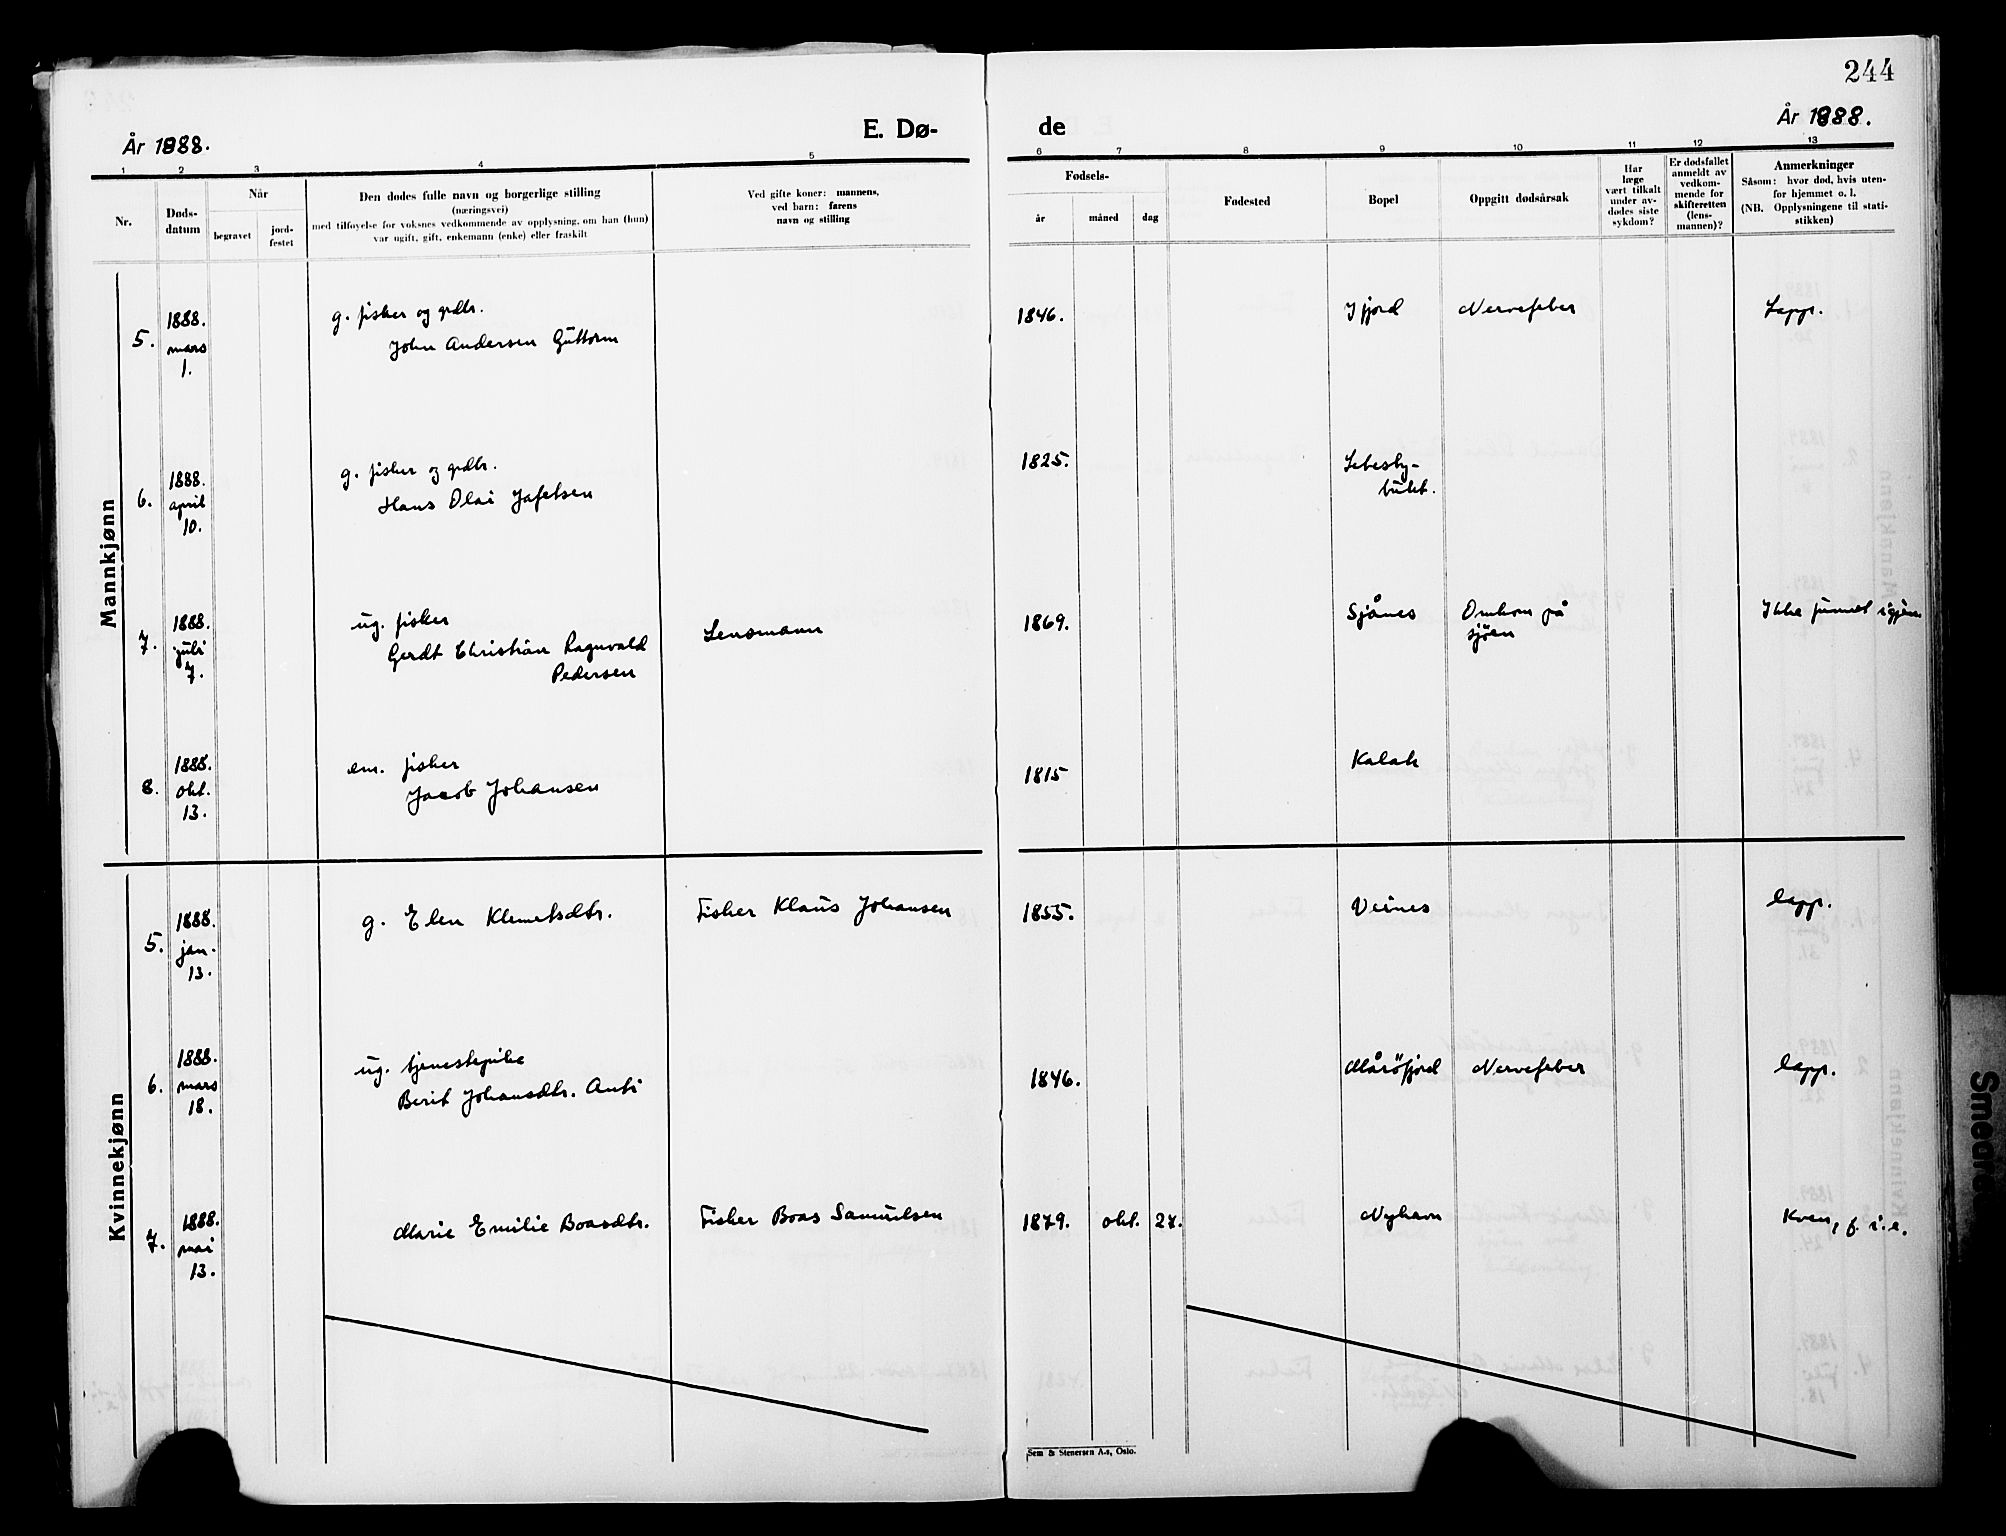 244
År 1888.
E. Dø-
de
År 1888.
1 2 3 4 5 6 7 8 9 10 11 12 13
Nr.
Døds-
datum
Når
begravet
jord-
festet
Den dødes fulle navn og borgerlige stilling
(næringsvei)
med tilføyelse for voksnes vedkommende av opplysning, om han (hun)
var ugift, gift, enkemann (enke) eller fraskilt
Ved gifte koner: mannens,
ved barn: farens
navn og stilling
Fødsels-
år
måned
dag
Fødested
Bopel
Oppgitt dødsårsak
Har
læge
vært tilkalt
under av-
dødes siste
sykdom?
Er dødsfallet
anmeldt av
vedkom-
mende for
skifteretten
(lens-
mannen)?
Anmerkninger
Såsom: hvor død, hvis uten-
for hjemmet o. l.
(NB. Opplysningene til stati-
stikken)
Mannkjønn
5.
1888.
mars
1.
g. fisker og grdbr.
John Andersen Guttorm
1846.
Ifjord
Nervefeber
Lapp.
6.
1888.
april
10.
g. fisker og grdbr.
Hans Olai Jafetsen
1825.
Lebesby-
bukt.
7.
1888.
juli
7.
ug. fisker
Gerdt Christian Ragnvald
Pedersen
Lensmann
1869.
Sjånes
Omkom på
sjøen
Ikke funnet igjen
8.
1888.
okt.
13.
em. fisker
Jacob Johansen
1815
Kalak
Kvinnekjønn
5.
1888.
jan.
13.
g. Elen Klemetsdtr.
Fisker Klaus Johansen
1855.
Veines
lapp.
6.
1888.
mars
18.
ug. tjenestepike
Berit Johansdtr. Anti
1846.
Mårøfjord
Nervefeber
lapp.
7.
1888.
mai
13.
Marie Emilie Boasdtr.
Fisker Boas Samuelsen
1879.
okt.
Nyhavn
Kven, f. i. e.
Sem & Stenersen A.s, Oslo.